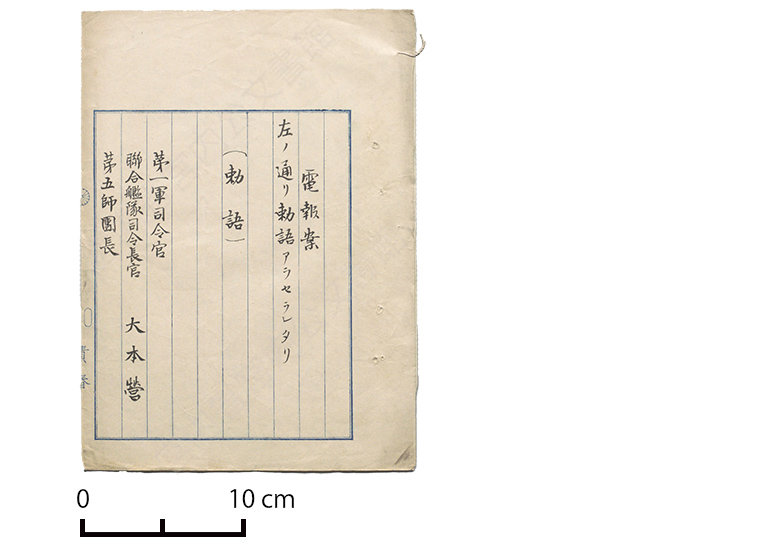 電報案
左ノ通リ勅語アラセラレタリ
（勅語）
第一軍司令官
聯合艦隊司令長官
第五師團長
大本営
0
10 cm